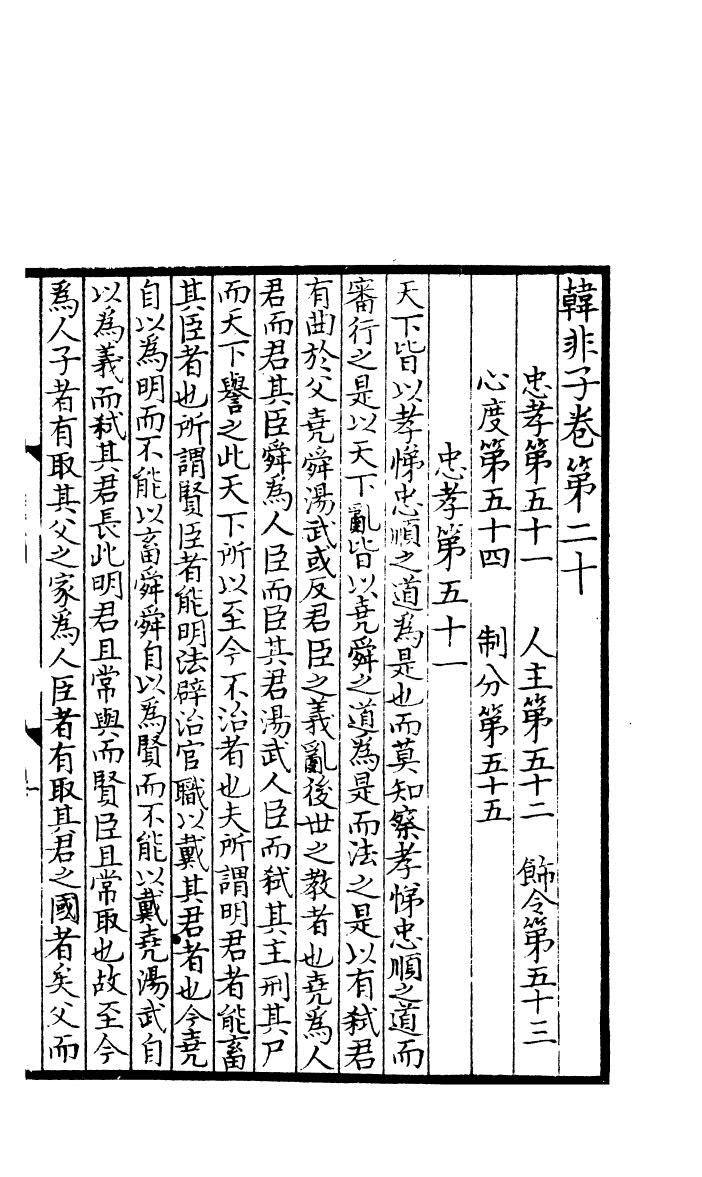 韓非子卷第二十
忠孝第五十一　人主第五十二　飾令第五十三
心度第五十四　制分第五十五
忠孝第五十一
天下皆以孝悌忠順之道為是也而莫知察孝悌忠順之道而
審行之是以天下亂皆以堯舜之道為是而法之是以有弒君
有曲於父堯舜湯武或反君臣之義亂後世之教者也堯為人
君而君其臣舜為人臣而臣其君湯武人臣而弒其主刑其尸
而天下譽之此天下所以至今不治者也夫所謂明君者能畜
其臣者也所謂賢臣者能明法辟治官職以戴其君者也今堯
自以為明而不能以畜舜舜自以為賢而不能以戴堯湯武自
以為義而弒其君長此明君且常與而賢臣且常取也故至今
為人子者有取其父之家為人臣者有取其君之國者矣父而